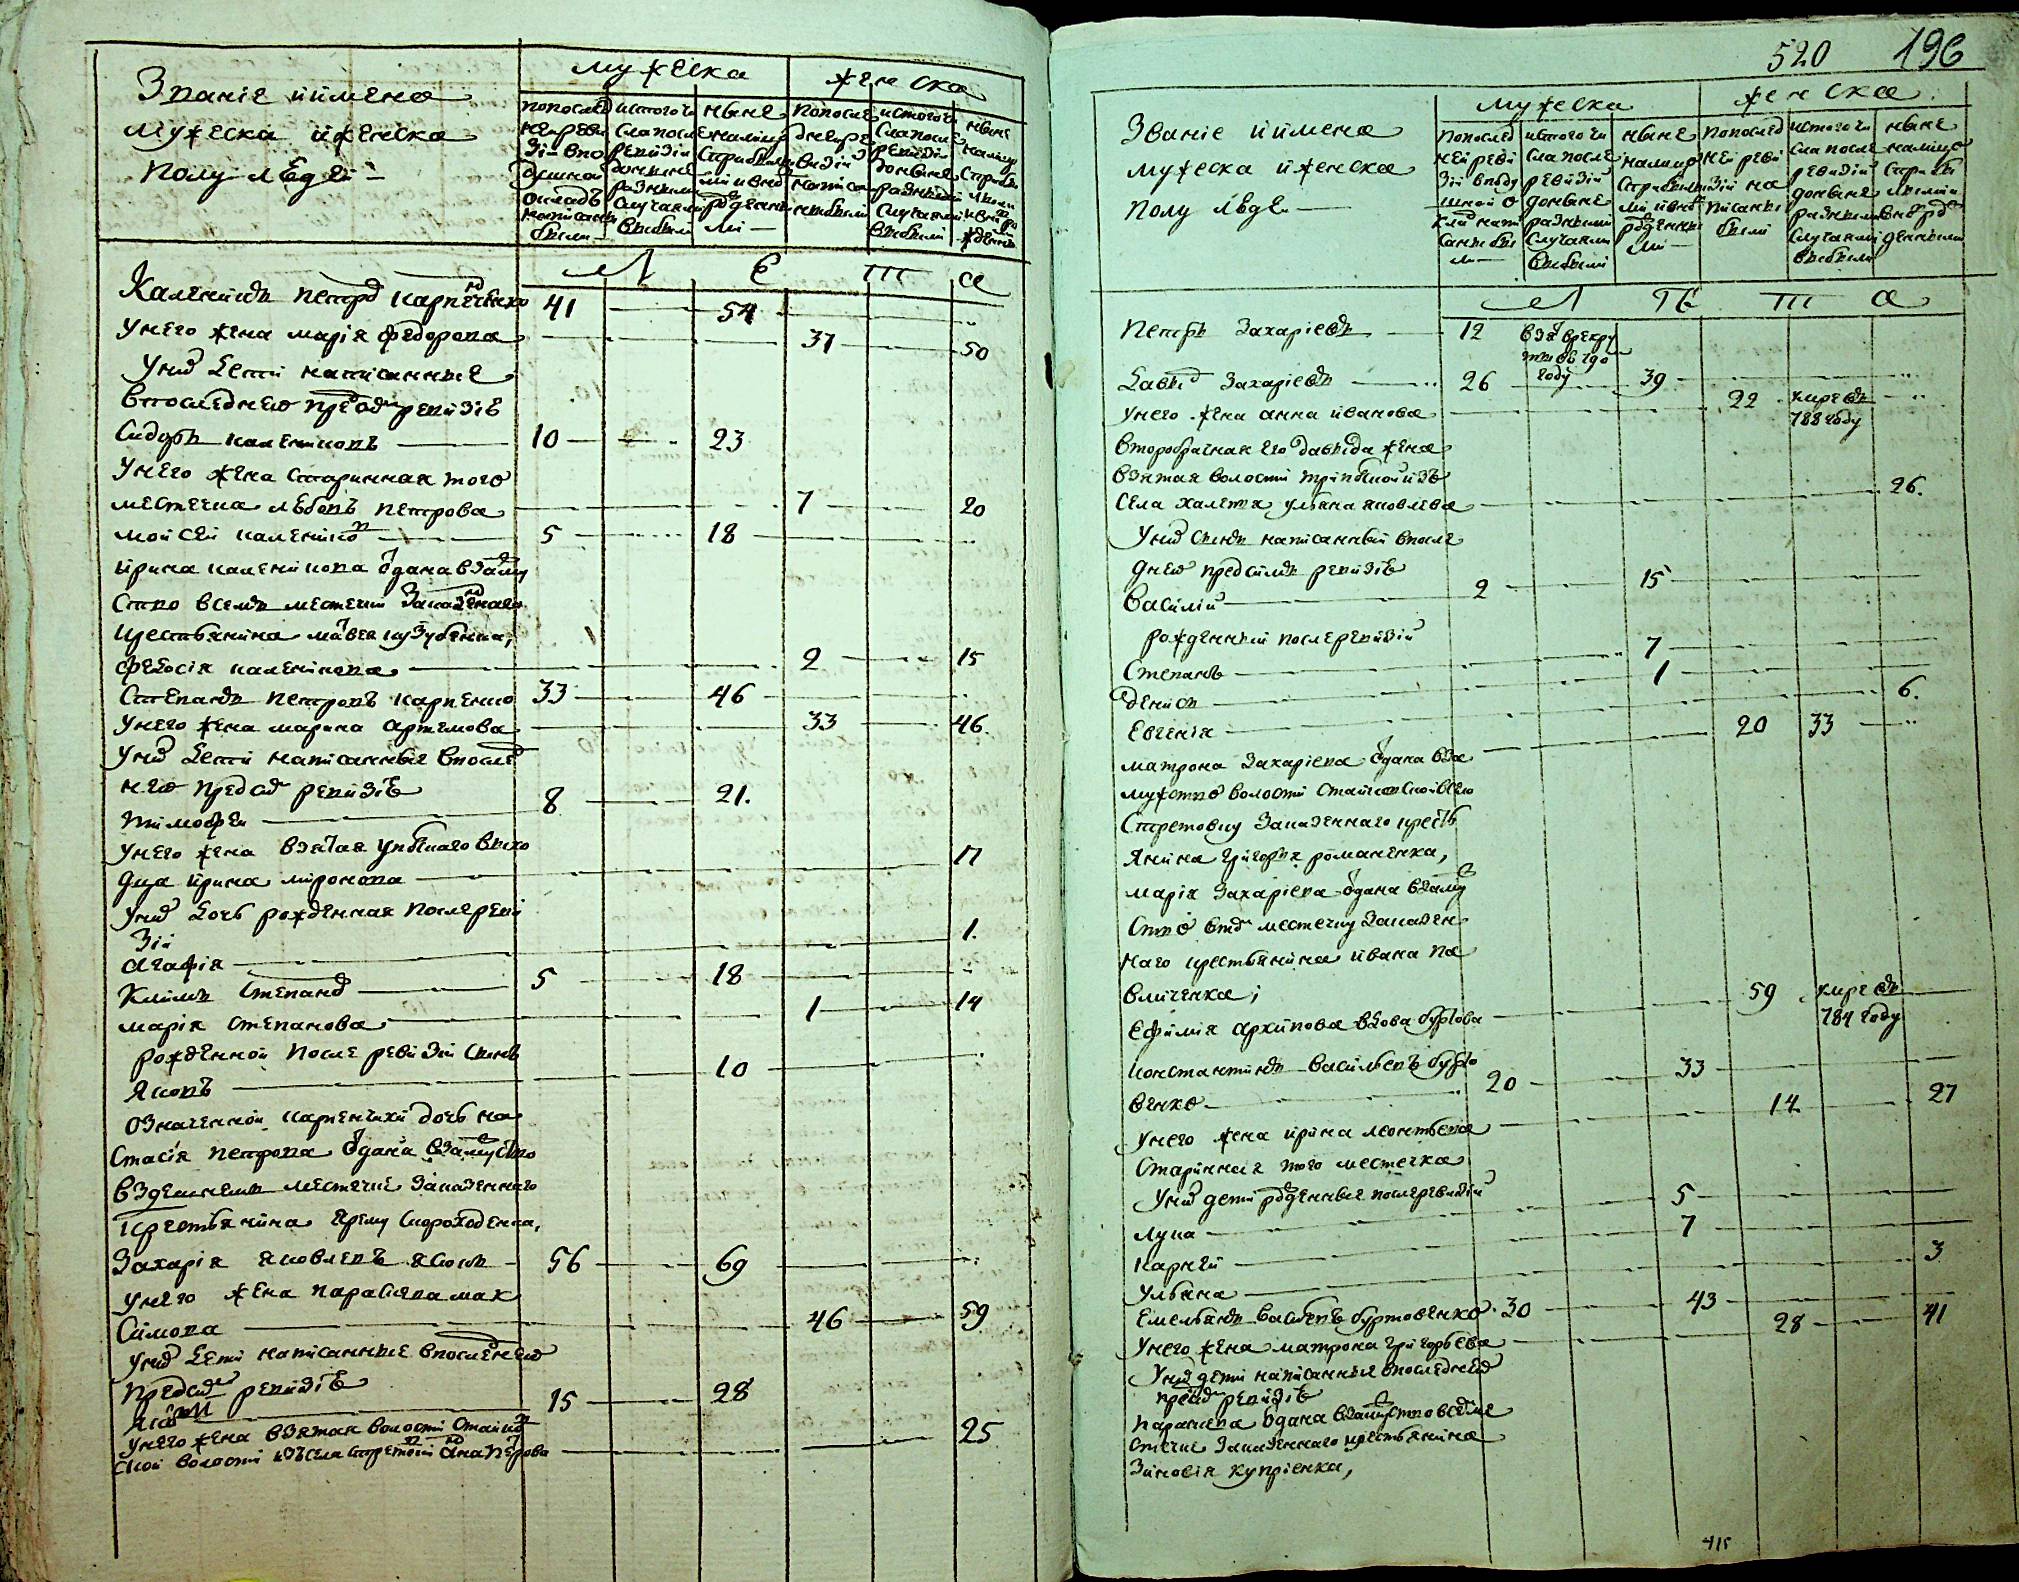 Званіе иимена
мужеска иженска
полу людей
мужеска
женска
попослѣд
ней реви
зіи впо
душной
окладъ
написаны
были
истого чи
сла после
ревизіи
доныне
разными
случаями
выбыли
ныне
налицо
Сприбылы
ми ивнов
рожденны
ми
попослѣ
дней ре
визіи
написа
ны были
истого чи
Сла после
ревизіи
доныне
разными
Случаями
выбыли
ныне
налицо
Сприбы
лыми
ивновь ро
жденны
Л Е Т а
Каленикъ петровъ карпенко 41 54
Унего жена марія федорова 37 50
Унихъ дети написанные
впоследнею предъ симъ ревизіею
Сидоръ калениковъ 10 23
Унего жена старинная того
местечка любовь петрова 7 20
мойсей калениковъ 5 18
ирина каленикова отдана взаму
ство всемъ местечки Заказенаго
крестьянина матвея Зубенка,
феодосія каленикова 2 15
Степанъ петровъ карпенко 33 46
Унего жена марина артемова 33 46.
Унихъ дети написанные впослед
нею предъ симъ ревизіею
тимофеи 8 21.
Унего жена взятая убѣглаго выхо
дца ирина миронова 17
Унихъ дочь рожденная послереви
Зіи
агафія 1.
Климъ Степановъ 5 18
марія степанова 1 14
рожденной после ревизіи сынъ
Яковъ 10
означенной карпенчихи дочь на
стасія петрова отдана взамуство
вздешнемъ местечке Заказенного
крестьянина Ярему Скороходенка,
Захарія яковлевъ 56 69
Унего жена парасковія мак
Симова 46 59
Унихъ дети написанные впоследнею
предъ симъ ревизіею
Яковъ 15 28
Унего жена взятая волости Стайков
ской волости изъ села стретовки Анна петрова 25
520 196
Званіе иимена
мужеска иженска
полу люде
мужеска
женска
попослед
ней реви
зіи вподу
шной о
кладъ напи
саны бы
ли
истого чи
сла после
ревизіи
доныне
разными
Случаями
выбыли
ныне
налицо
Сприбылы
ми ивновь
рожденны
ми
попослед
ней реви
зіи на
писаны
были
истого чи
сла после
ревизіи
доныне
разными
случаями
выбыли
ныне
налицо
Сприбы
лыми
вновь ро
жденными
Л Е Т а
петръ Захаріевъ 12 взятъ врекру
ты въ 790
году
Давидъ Захаріевъ 26 39
Унего жена анна иванова 22 умре въ
788 году
второбрачная его давыда жена
взятая волости трипольской изъ
Села халепя ульяна яковлева 26.
Унихъ сынъ написанный впосле
днею предъ симъ ревизіею
Василій 2 15
рожденный послеревизіи
Степанъ 7
денисъ 1
Евгенія 6.
матрона Захаріева отдана вза 20 33
мужство волости Стайковской всело
Стретовку Заказеннаго кресть
янина григорія романенка,
марія Захаріева отдана взаму
ство втомъ местечку Заказен
наго крестьянина ивана па
вличенка;
Ефимія архипова вдова буртова 59 умре въ
784 году
константинъ васильевъ бурто
венко 20 33
Унего жена ирина леонтьева 14 27
Старинная того местечка
Унихъ дети рожденные послеревизіи
лука 5
карней 7
ульяна 3
Емельянъ васильевъ буртовенко 30 43
Унего жена матрона григорьева 28 41
Унихъ дети написанные впоследнею
предъ симъ ревизіею
параскева отдана взамуство всемъ ме
стечке Заказеннаго крестьянина
Зиновія купріенка,